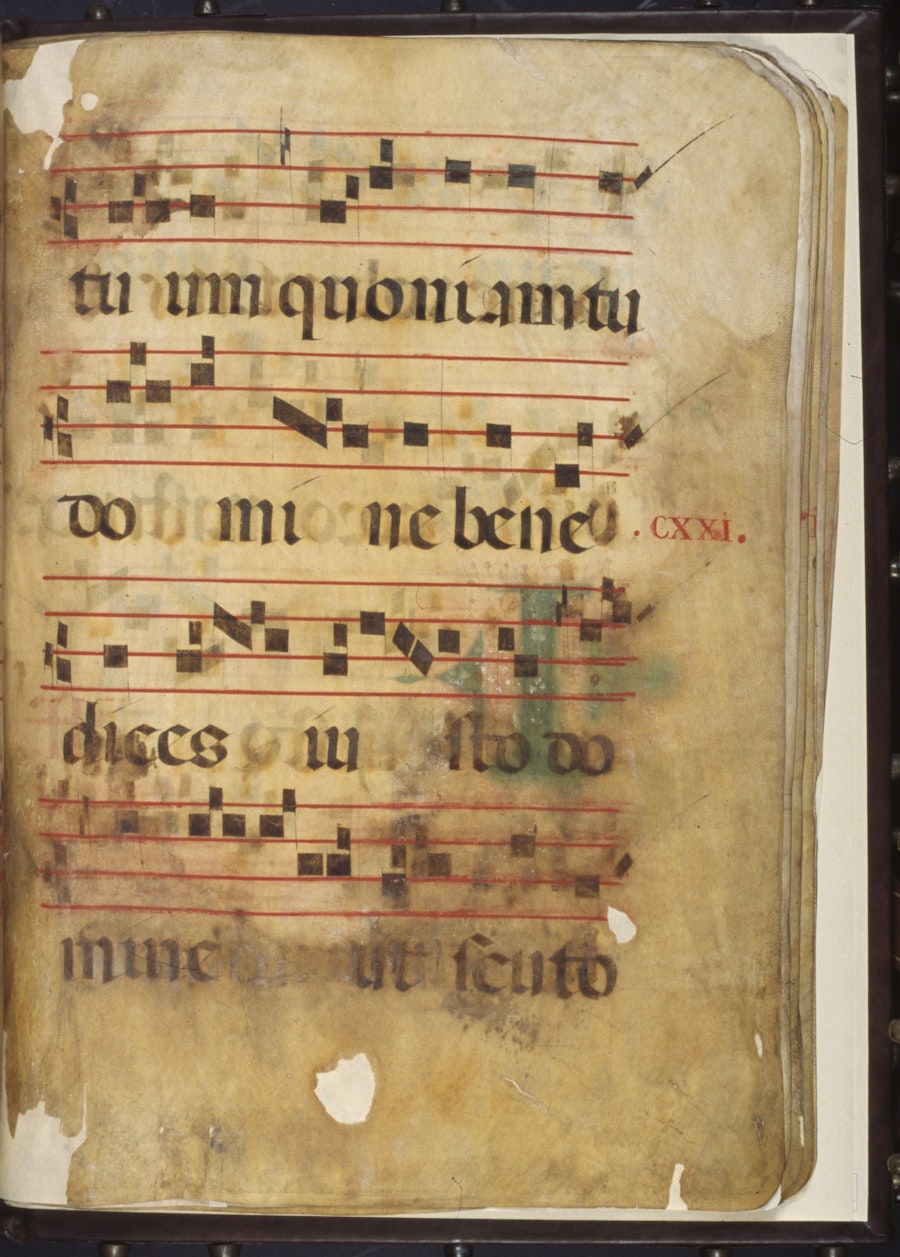 tu um quoniam tu
do mi ne bene
.CXXI.
dices iu sto do
mine ut scuto